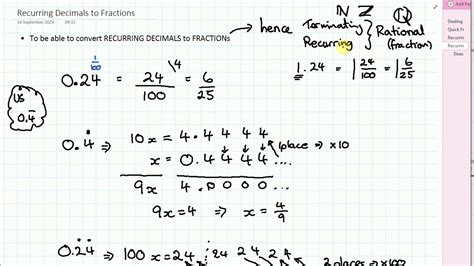 Recurring Decimals to Fractions
16 September 2020 09:52
• To be able to convert RECURRING DECIMALS to FRACTIONS
hence
ℕ ℤ ℚ
Terminating } Rational
Recurring } (fraction)
1/100
0.24 = 24/100 = 6/25
÷4
1.24 = 1 24/100 = 1 6/25
US
0.4̅
0.4̇
10x = 4.4 4 4 4
1 place ⇒ x10
x = 0.4 4 4 4 ....
9x 4.0 0 0 0
9x = 4 ⇒ x = 4/9
0.2̇4̇ ⇒ 100x = 24.24 2 4 2 4 ...
2 places ⇒ x100
Add Pa
Quick Fr
Recurrin
Untitled
Does